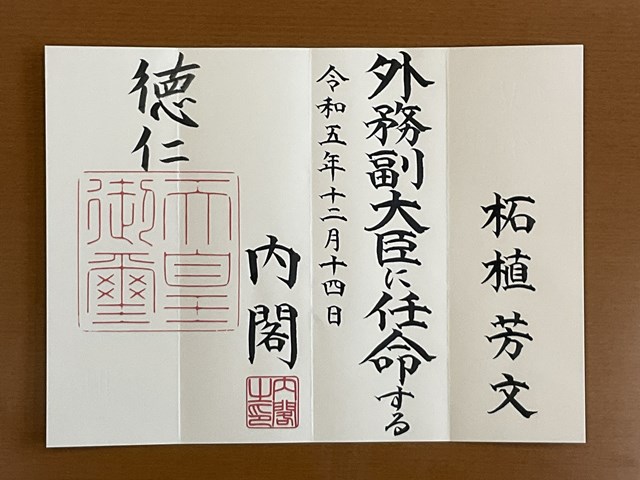 柘植芳文
外務副大臣に任命する
令和五年十二月十四日
内閣
内閣之印
徳仁
天皇御璽